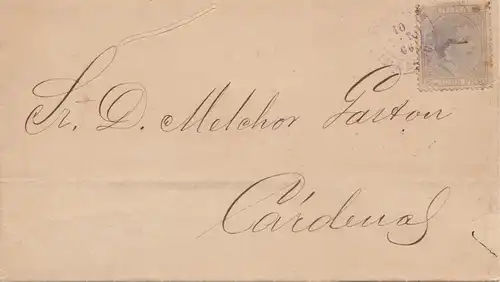 CUBA
Sr. D. Melchor Gaston
Cárdenas